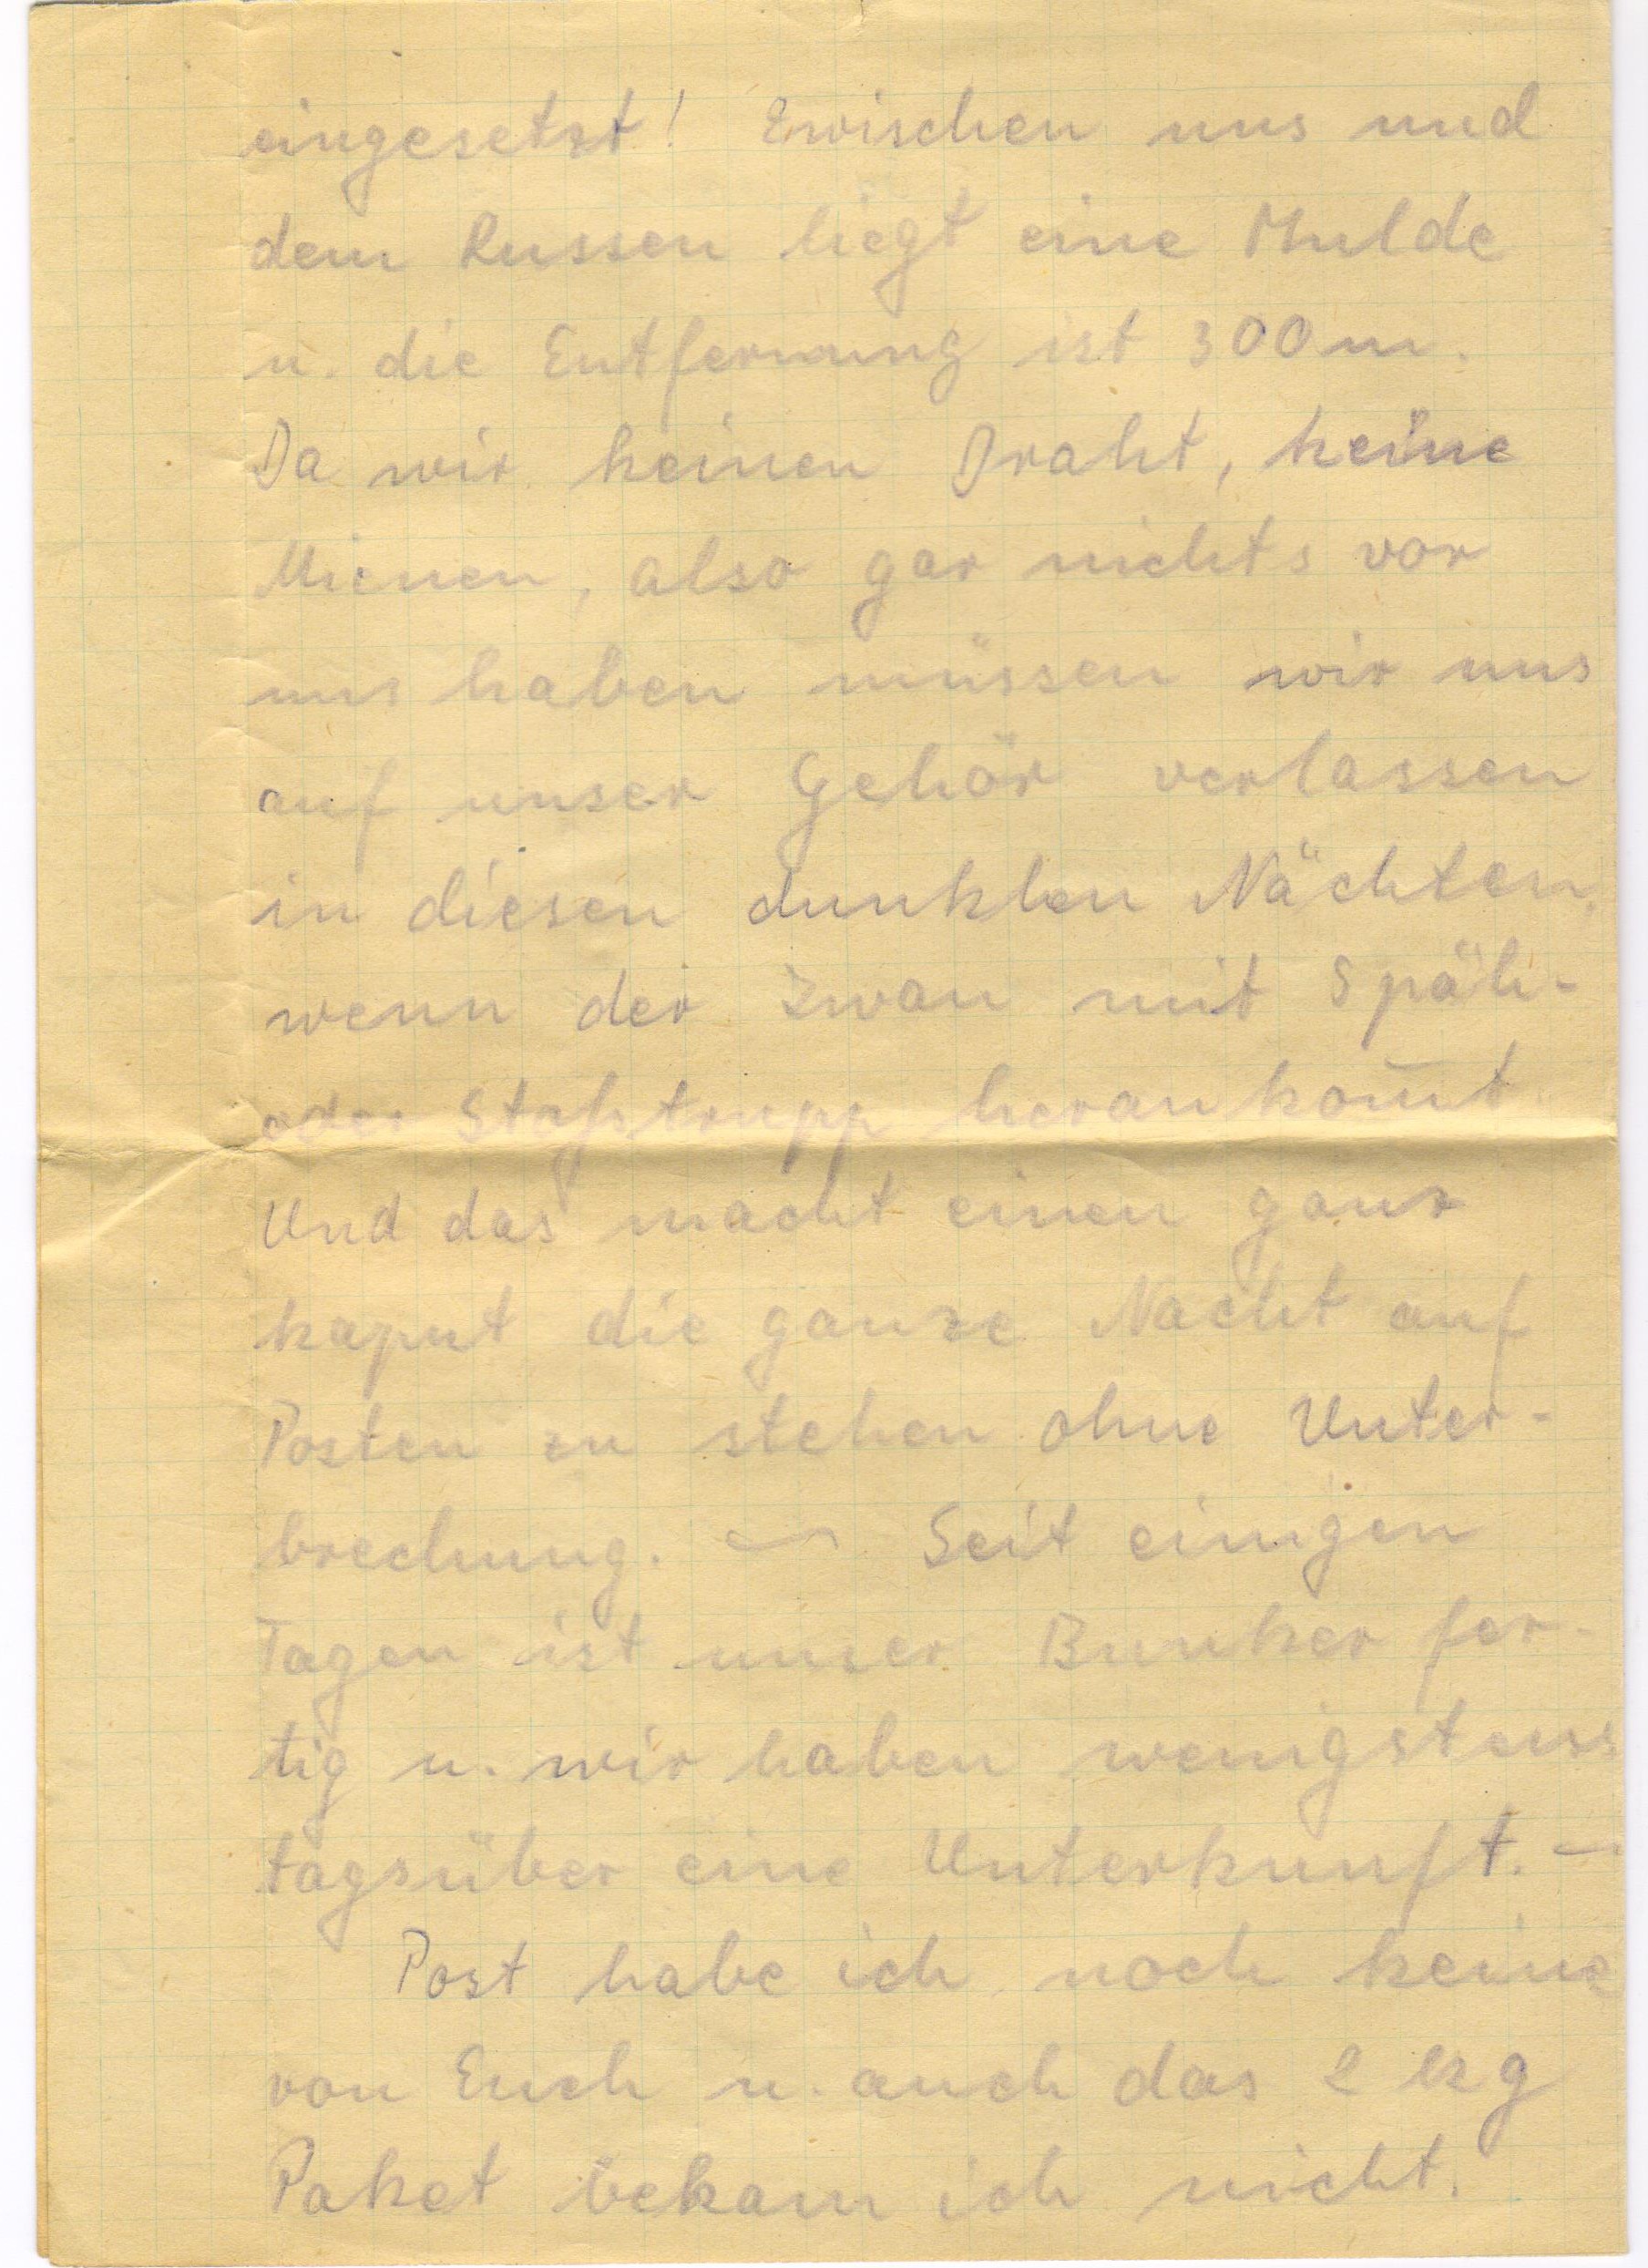 eingesetzt! Zwischen uns und
dem Russen liegt eine Mulde
u. die Entfernung ist 300 m.
Da wir keinen Draht, keine
Mienen, also gar nichts vor
uns haben müssen wir uns
auf unser Gehör verlassen
in diesen dunklen Nächten,
wenn der Iwan mit Späh-
oder Stoßtrupp herankom̅t.
Und das macht einen ganz
kaput die ganze Nacht auf
Posten zu stehen ohne Unter-
brechung. — Seit einigen
Tagen ist unser Bunker fer-
tig u. wir haben wenigstens
tagsüber eine Unterkunft. —
Post habe ich noch keine
von Euch u. auch das 2 kg
Paket bekam ich nicht.